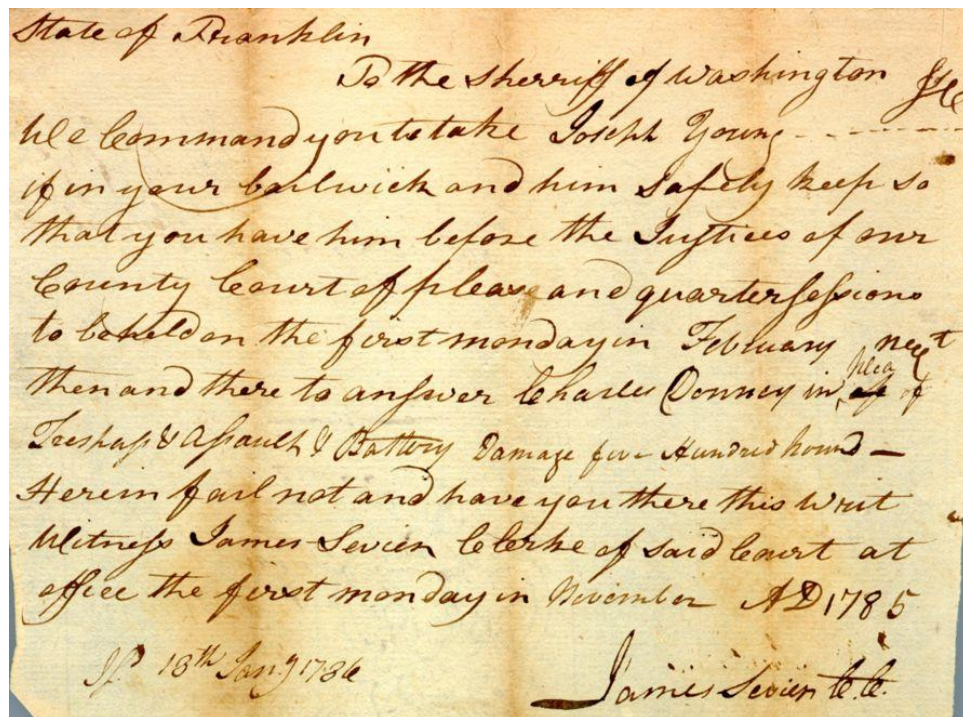 State of Franklin
To the Sherriff of Washington
We Command you to take Joseph Young
if in your bailwick and him Safely keep so
that you have him before the Justices of our
County Court of pleas and quartersessions
to beheld on the first monday in February next
then and there to answer Charles Donney in plea of
Trespass & Assault & Battery Damage five Hundred pound
Herein fail not and have you there this writ
Witness James Sevier Clerke of said Court at
office the first monday in November AD 1785
18th Jany 1786
James Sevier C.C.